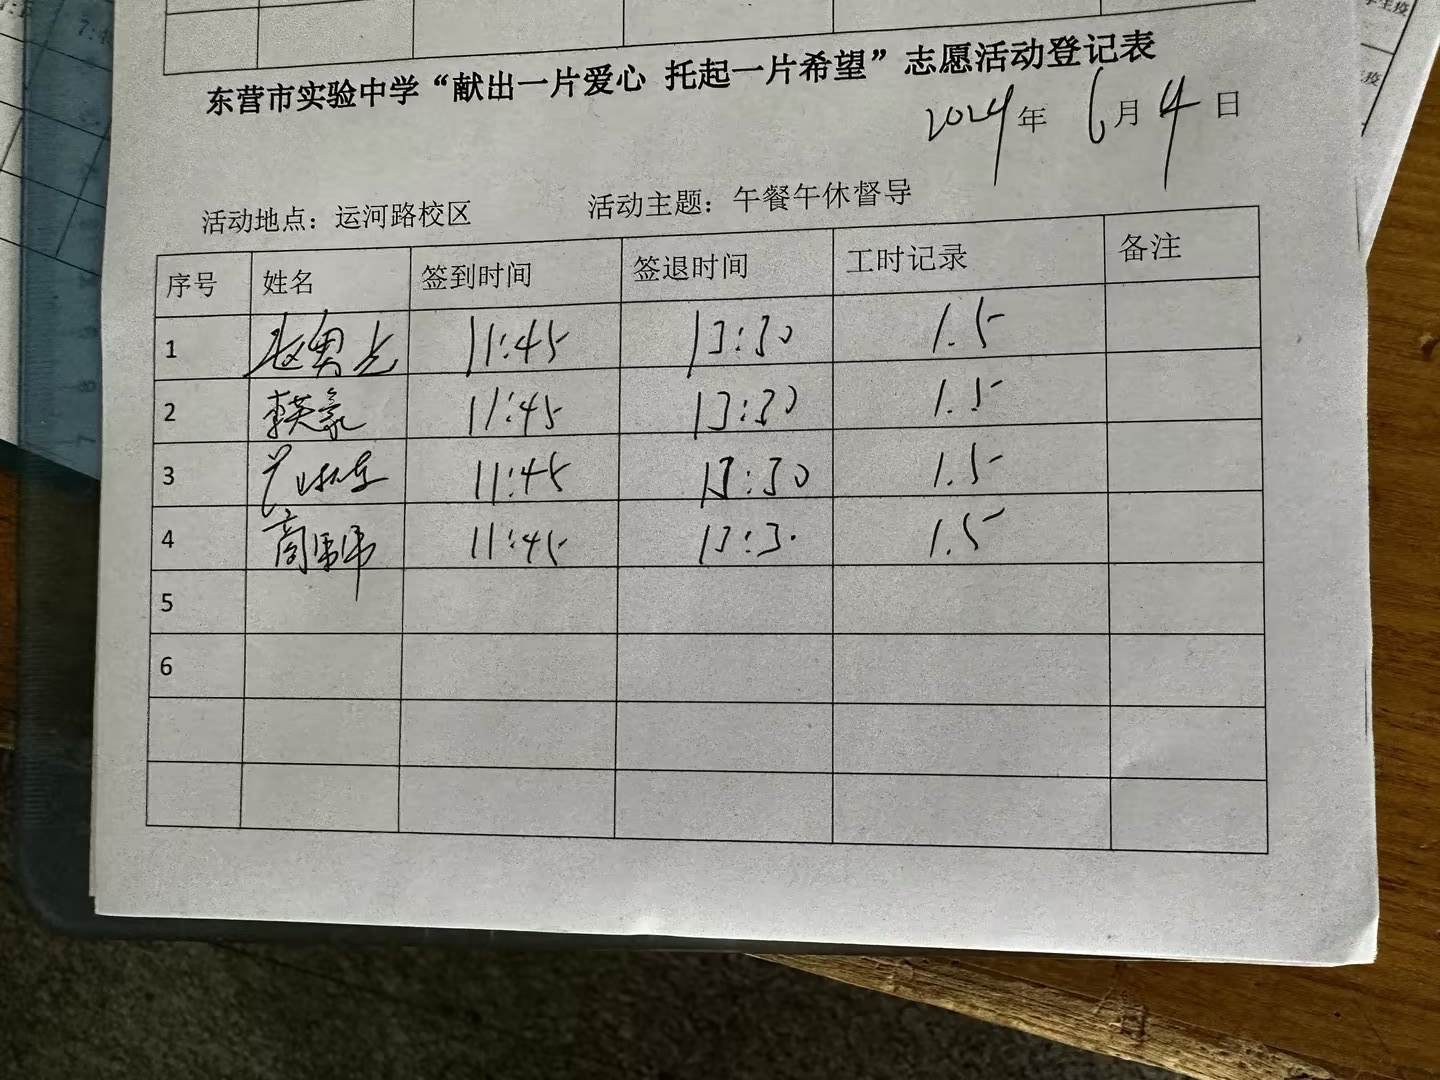 东营市实验中学“献出一片爱心 托起一片希望”志愿活动登记表
2024年 6月 4日
活动地点：运河路校区 活动主题：午餐午休督导
序号 姓名 签到时间 签退时间 工时记录 备注
1 11:45 13:30 1.5
2 11:45 13:30 1.5
3 11:45 13:30 1.5
4 11:45 13:30 1.5
5
6